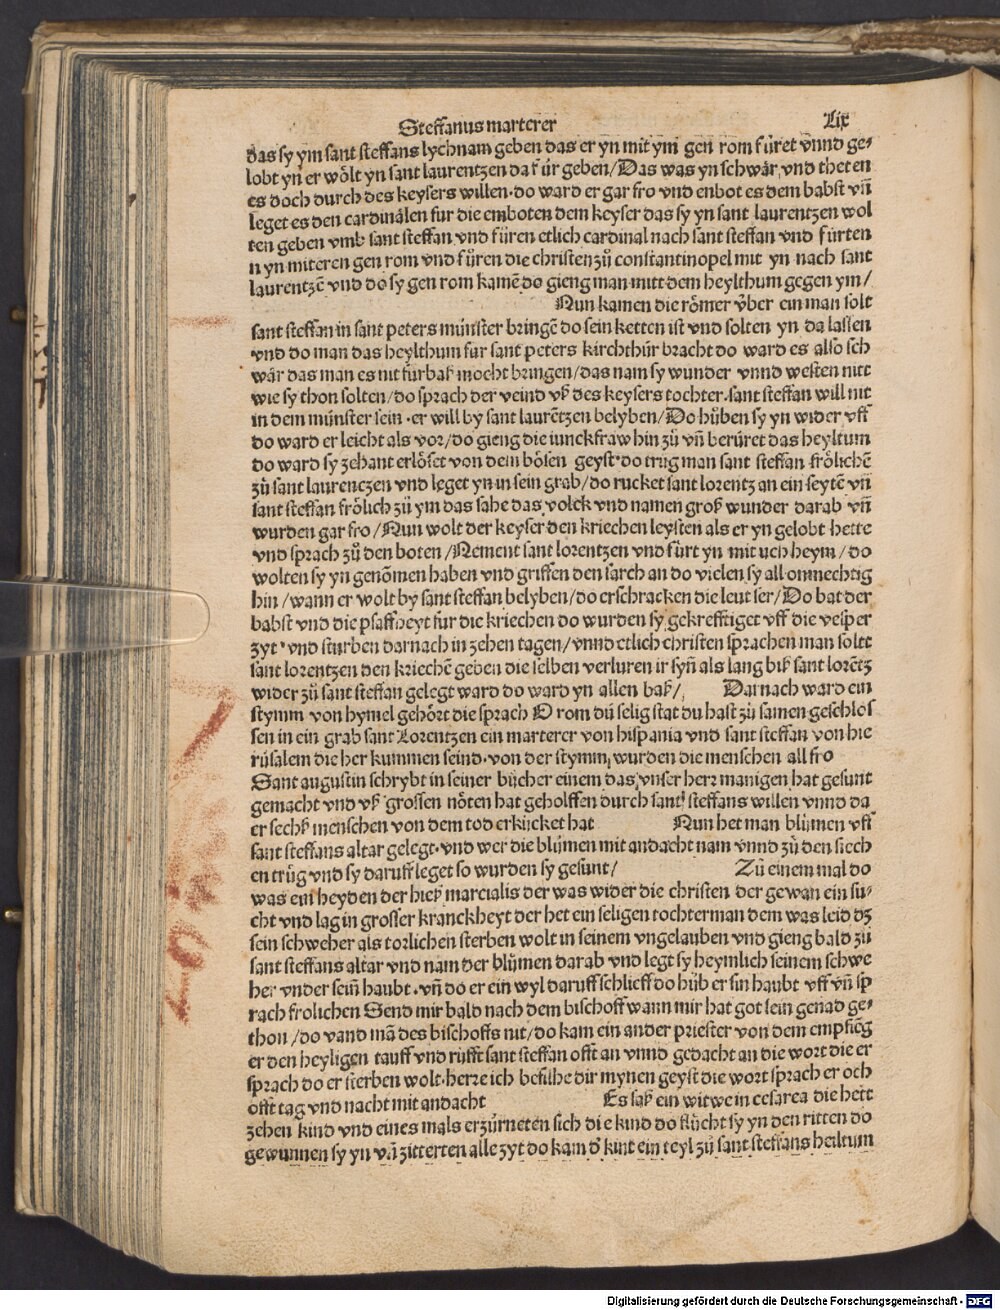 Steffanus marterer Lix
das sy ym sant steffans lychnam geben das er yn mit ym gen rom fůret vnnd ge⸗
lobt yn er wölt yn sant laurentzen da für geben/Das was yn schwär vnd theten
es doch durch des keysers willen·do ward er gar fro vnd enbot es dem babst vn̄
leget es den cardinälen fur die emboten dem keyser das sy yn sant laurentzen wol
ten geben vmb sant steffan vnd füren etlich cardinal nach sant steffan vnd fürten
n yn miteren gen rom vnd fůren die christen zů constantinopel mit yn nach sant
laurentzē vnd do sy gen rom kamē do gieng man mitt dem heylthum gegen ym/
Nun kamen die römer vber ein man solt
sant steffan in sant peters münster bringē do sein ketten ist vnd solten yn da lassen
vnd do man das heylthum fur sant peters kirchthür bracht do ward es also sch
wär das man es nit fürbaß mocht bringen/das nam sy wunder vnnd westen nitt
wie sy thon solten/do sprach der veind vß des keysers tochter·sant steffan will nit
in dem münster sein·er will by sant laurētzen belyben/Do hüben sy yn wider vff
do ward er leicht als vor/do gieng die iunckfraw hin zů vn̄ berüret das heyltum
do ward sy zehant erlöset von dem bösen geyst·do trůg man sant steffan frölichē
zů sant laurenczen vnd leget yn in sein grab/do rucket sant lorentz an ein seytē vn̄
sant steffan frölich zů ym das sahe das volck vnd namen groß wunder darab vn̄
wurden gar fro/Nun wolt der keyser den kriechen leysten als er yn gelobt hette
vnd sprach zů den boten/Nement sant lorentzen vnd fürt yn mit uch heym/do
wolten sy yn genōmen haben vnd griffen den sarch an do vielen sy all omnechtig
hin/wann er wolt by sant steffan belyben/do erschracken die leut ser/Do bat der
babst vnd die pfaffheyt fur die kriechen do wurden sy gekrefftiget vff die vesper
zyt·vnd sturben darnach in zehen tagen/vnnd etlich christen sprachen man soltt
sant lorentzen den kriechē geben die selben verluren ir syn̄ als lang biß sant lorētz
wider zů sant steffan gelegt ward do ward yn allen baß/ Darnach ward ein
stymm von hymel gehört die sprach O rom du selig stat du hast zů samen geschlos
sen in ein grab sant Lorentzen ein marterer von hispania vnd sant steffan von hie
rüsalem die her kummen seind·von der stymm wurden die menschen all fro
Sant augustin schrybt in seiner bücher einem das vnser herr manigen hat gesunt
gemacht vnd vß grossen nöten hat geholffen durch sant steffans willen vnnd da
er sechß menschen von dem tod erkücket hat Nun het man blůmen vff
sant steffans altar gelegt·vnd wer die blůmen mit andacht nam vnnd zů den siech
en trůg vnd sy daruff leget so wurden sy gesunt/ Zů einem mal do
was ein heyden der hieß marcialis der was wider die christen der gewan ein su⸗
cht vnd lag in grosser kranckheyt der het ein seligen tochterman dem was leid dz
sein schweher als torlichen sterben wolt in seinem vngelauben vnd gieng bald zů
sant steffans altar vnd nam der blůmen darab vnd legt sy heymlich seinem schwe
her vnder sein haubt·vn̄ do er ein wyl daruff schlieff do hüb er sin haubt vff vn̄ sp
rach frolichen Send mir bald nach dem bischoff wann mir hat got sein genad ge⸗
thon/do vand mā des bischoffs nit/do kam ein ander priester von dem empfiēg
er den heyligen tauff vnd růfft sant steffan offt an vnnd gedacht an die wort die er
sprach do er sterben wolt·herre ich befilhe dir mynen geyst die wort sprach er och
offt tag vnd nacht mit andacht Es saß ein witwe in cesarea die hett
zehen kind vnd eines mals erzürneten sich die kind do flůcht sy yn den ritten do
gewunnen sy yn vn̄ zitterten alle zyt do kam d' kint ein teyl zů sant steffans heiltum
Digitalisierung gefördert durch die Deutsche Forschungsgemeinschaft - DFG